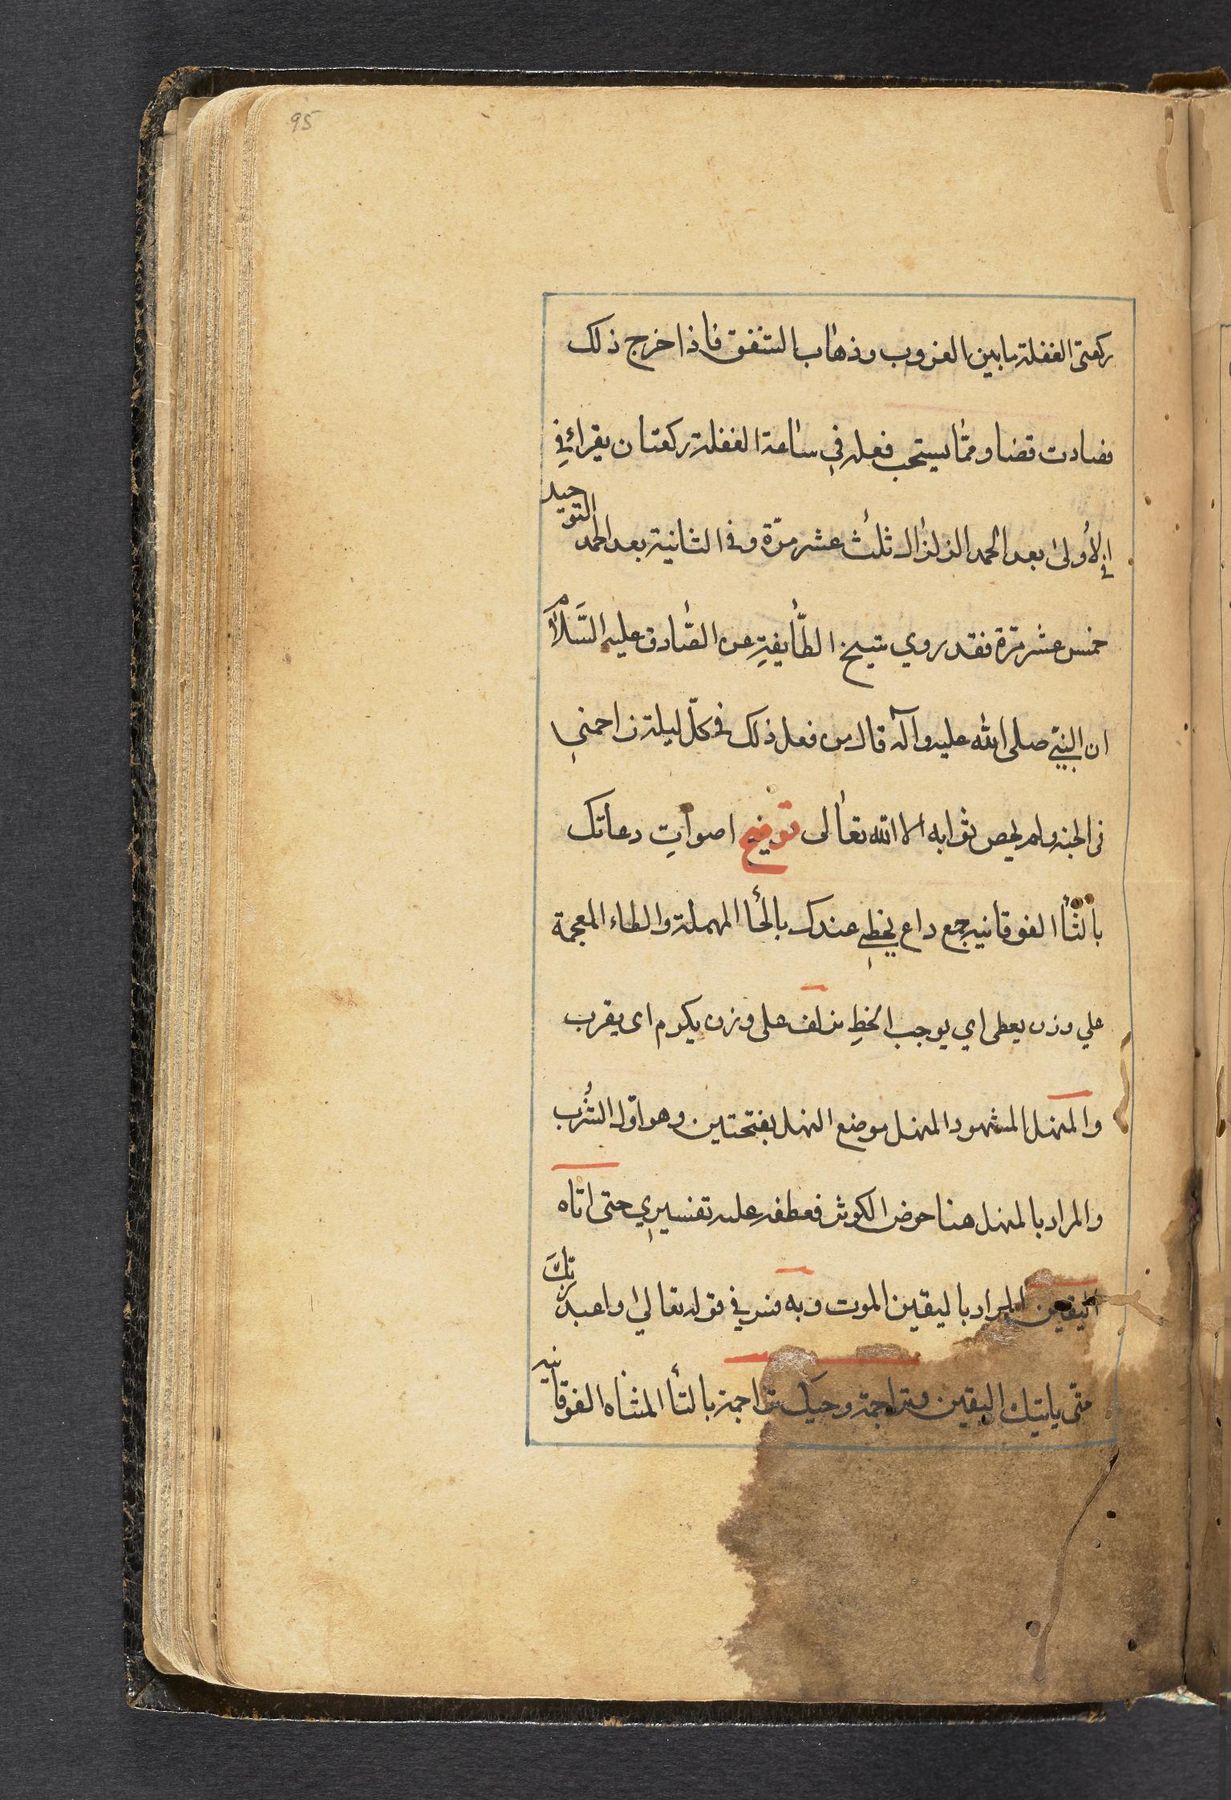 95
ركعتي الغفلة مابين الغروب وذهاب الشفق فاذا خرج ذلك
فصارت قضا وممّا يستحب فعله في ساعة الغفلة ركعتان يقرائ في
في الأولى بعد الحمد الزلزال ثلث عشر مرّة وفي الثانية بعد الحمد التوحيد
خمس عشر مرّة فقد روي شيخ الطّايفةِ عن الصّادق عليه السَّلام
ان النبيّ صلى الله عليه وآله قال من فعل ذلك في كلّ ليلة زاحمني
في الجنة ولم يحص ثوابه الا الله تعالى توضيح اصوات دعاتك
بالتّأ الفوقانيه جمع داع يحظي عندك بالحأ المهملة والظاء المعجمة
علي وزن يعطى اي يوجب الحظ يزلف على وزن يكرم اى يقرب
والمنهل المشهود المنهل موضع النهل بفتحتين وهو اوّل الشُرب
والمراد بالمنهل هنا حوض الكوثر فعطفه عليه تفسيري حتى اتاه
اليقين المراد باليقين الموت وبه فسر في قوله تعالي واعبد ربّكَ
حتّى ياتيك اليقين وتراجمة وحيك تراجمة بالتأ المثناه الفوقانيه